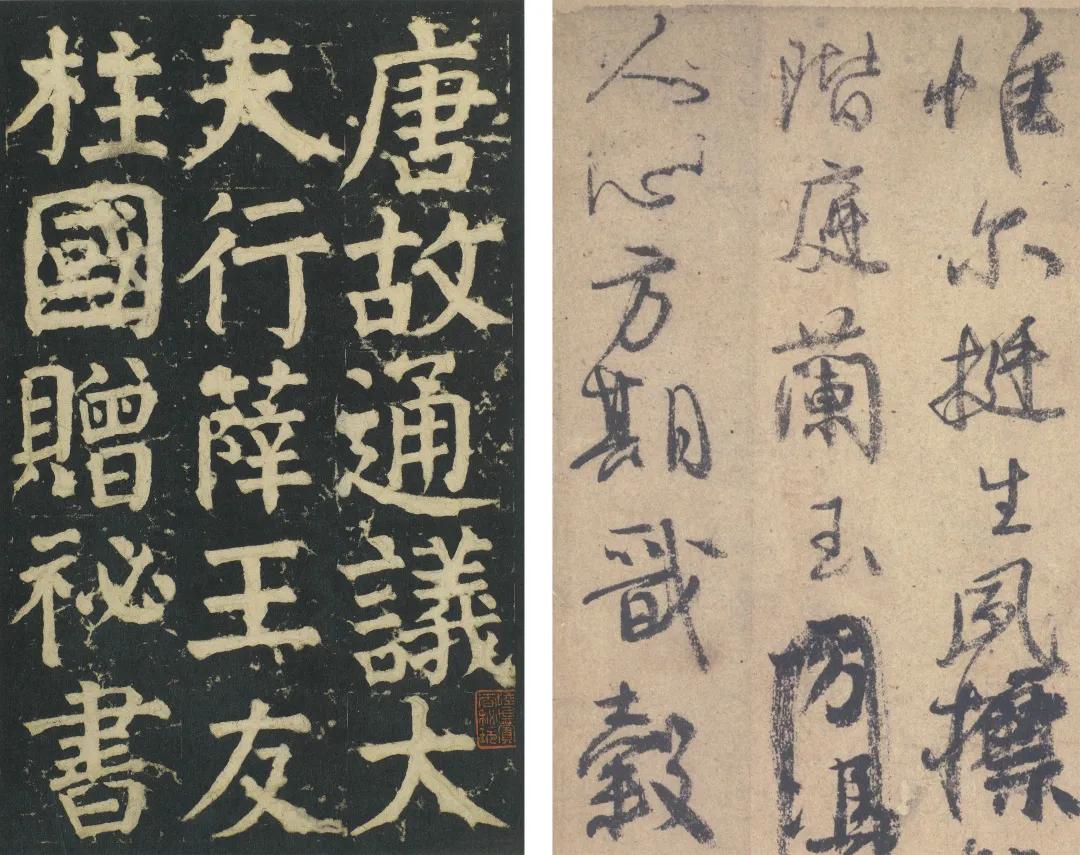 唐故通議大
夫行薛王友
柱國贈祕書
惟尔挺生夙標
階庭蘭玉
人心方期戩穀